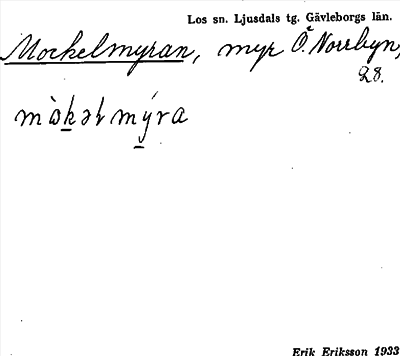 Los sn. Ljusdals tg. Gävleborgs län.
Mockelmyran, myr Ö. Norrbyn,
28.
mòkəłmýra
Erik Eriksson 1933